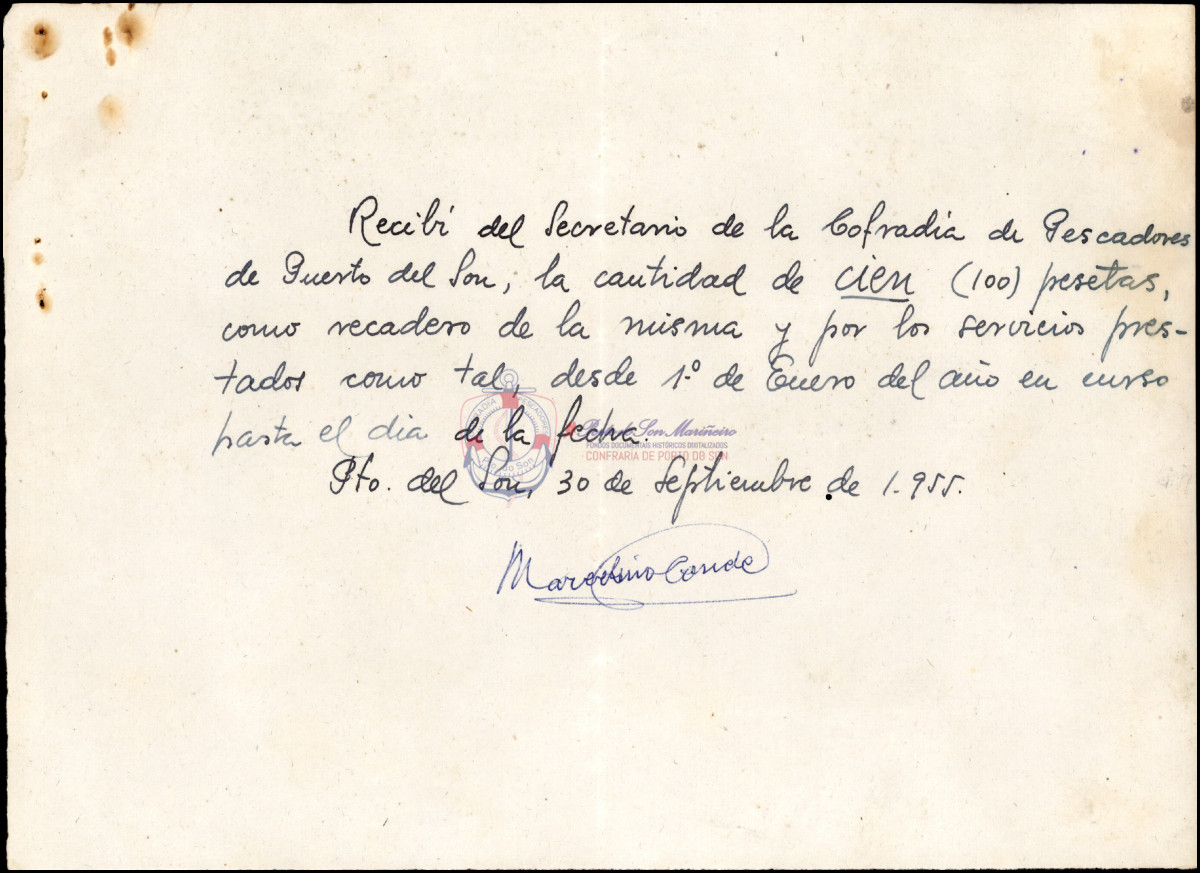 Recibí del Secretario de la Cofradía de Pescadores
de Puerto del Son, la cantidad de cien (100) pesetas,
como recadero de la misma y por los servicios pres-
tados como tal, desde 1º de Enero del año en curso
hasta el día de la fecha.
Porto do Son Mariñeiro
FONDOS DOCUMENTAIS HISTÓRICOS DIXITALIZADOS
CONFRARÍA DE PORTO DO SON
Pto. del Son, 30 de Septiembre de 1.955.
Marcelino Conde